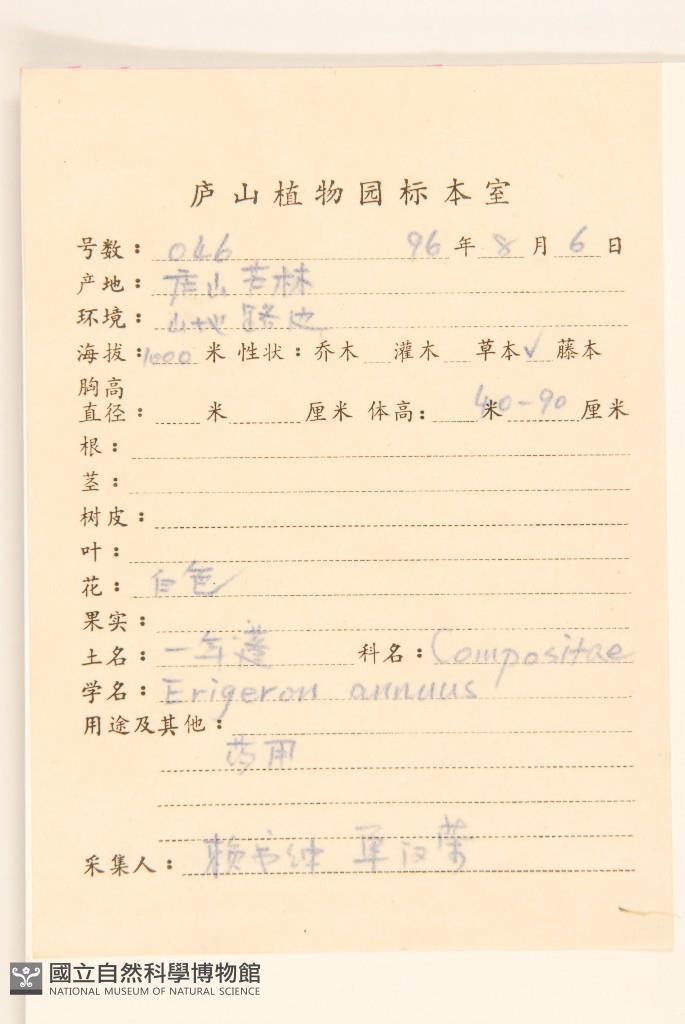 庐山植物园标本室
号数：046 96年8月6日
产地：庐山芦林
环境：山地路边
海拔：1000米 性状：乔木 灌木 草本✓ 藤本
胸高
直径： 米 厘米 体高： 米40-90厘米
根：
茎：
树皮：
叶：
花：白色
果实：
土名：一年蓬 科名：Compositae
学名：Erigeron annuus
用途及其他：
药用
采集人：赖书绅 单汉荣
國立自然科學博物館
NATIONAL MUSEUM OF NATURAL SCIENCE